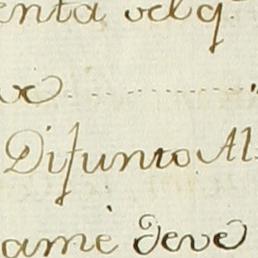 enta del q.
Difunto Al
ame deve